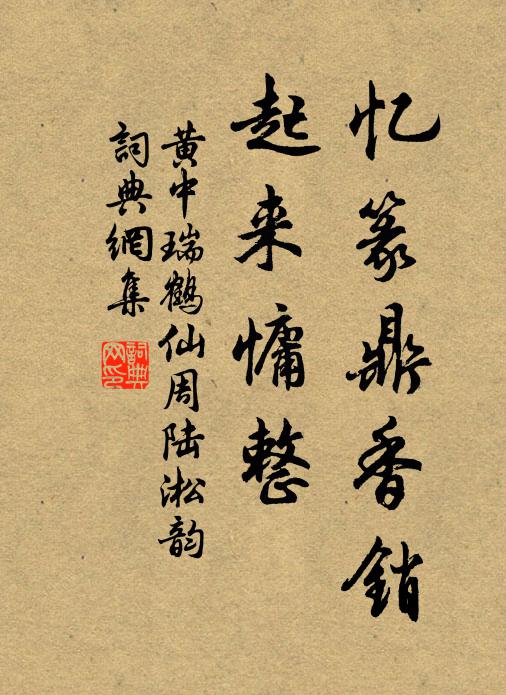 忆篆鼎香销
起来慵整
黄中瑞鹤仙周陆淞韵
詞典網集
詞典网印